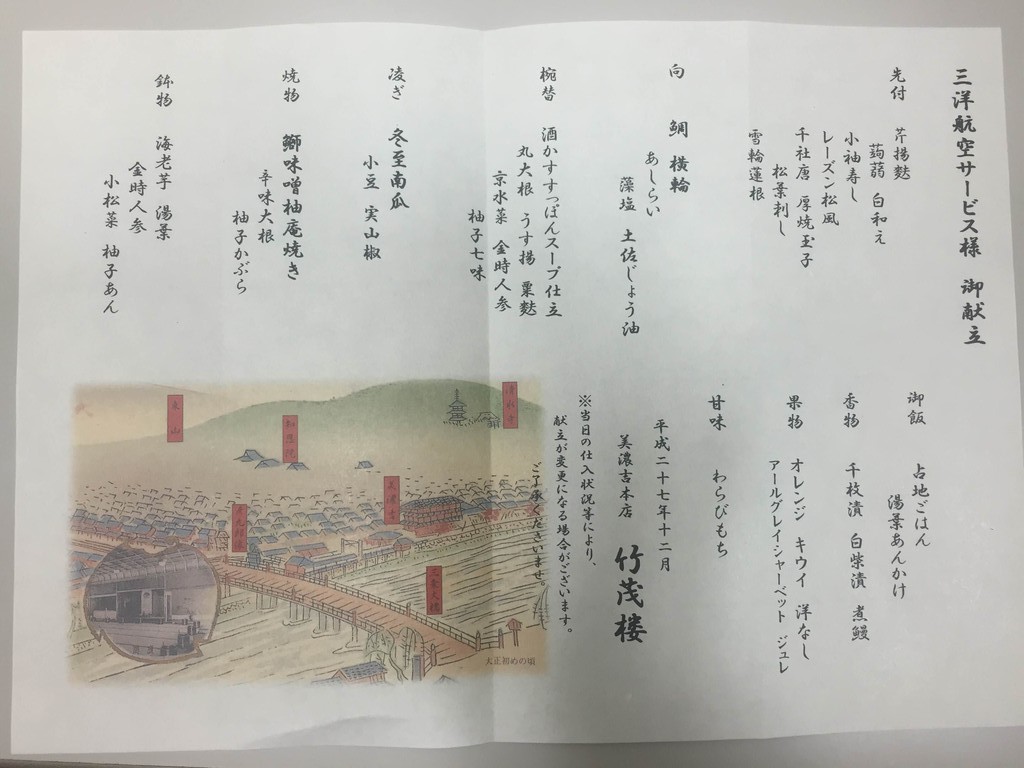 三洋航空サービス様　御献立
先付　芹揚麩
蒟蒻　白和え
小袖寿し
レーズン松風
千社唐　厚焼玉子
松葉刺し
雪輪蓮根
向　鯛　横輪
あしらい
藻塩　土佐じょう油
椀替　酒かすすっぽんスープ仕立
丸大根　うす揚　粟麩
京水菜　金時人参
柚子七味
凌ぎ　冬至南瓜
小豆　実山椒
焼物　鰤味噌柚庵焼き
辛味大根
柚子かぶら
鉢物　海老芋　湯葉
金時人参
小松菜　柚子あん
御飯　占地ごはん
湯葉あんかけ
香物　千枚漬　白柴漬　煮鰻
果物　オレンジ　キウイ　洋なし
アールグレイシャーベット　ジュレ
甘味　わらびもち
平成二十七年十二月
美濃吉本店　竹茂楼
※当日の仕入状況等により、
献立が変更になる場合がございます。
ご了承くださいませ。
清水寺
知恩院
東山
美濃吉
三条大橋
大正初めの頃